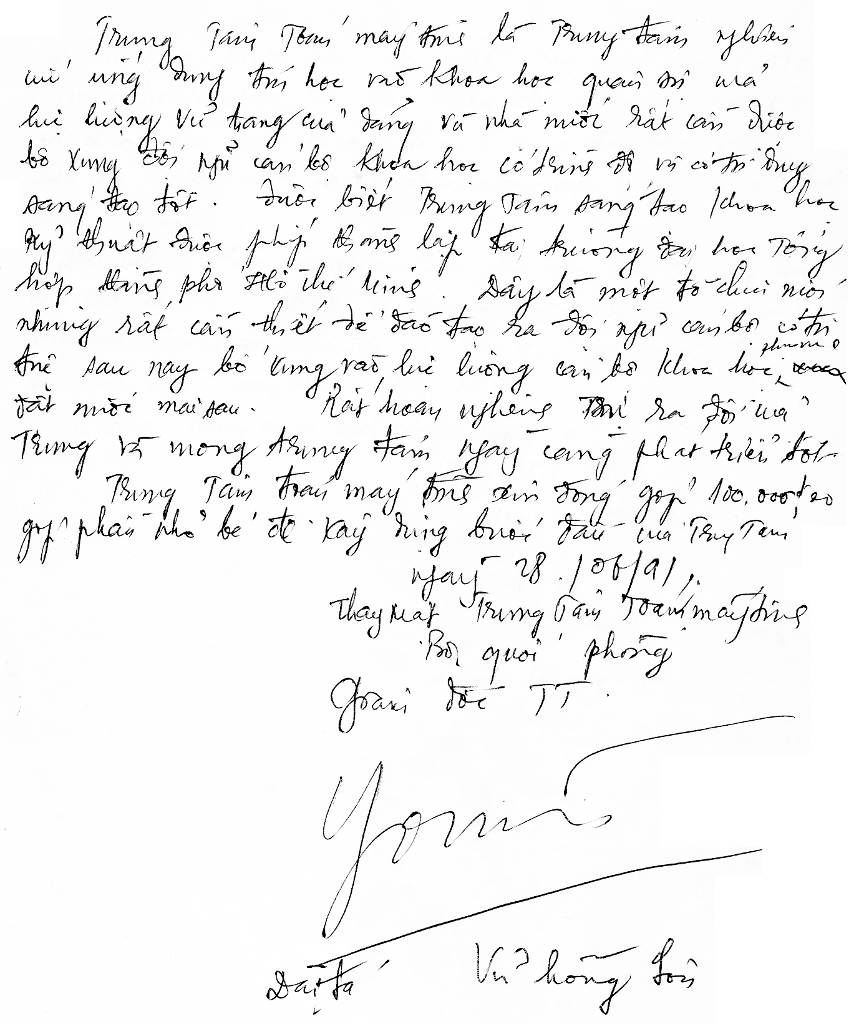 Trung Tâm Toán máy tính là Trung tâm nghiên
cứu ứng dụng tin học vào khoa học quân sự mà
lực lượng vũ trang của đảng và nhà nước rất cần được
bổ xung đội ngũ cán bộ khoa học có trình độ và có trí óng
sáng tạo tốt. Được biết Trung Tâm sáng tạo khoa học
kỹ thuật được phép thành lập tại trường đại học Tổng
hợp thành phố Hồ Chí Minh. Đây là một tổ chức mới
nhưng rất cần thiết để đào tạo ra đội ngũ cán bộ có tri
thức sau này bổ xung vào lực lượng cán bộ khoa học
đất nước mai sau. Rất hoan nghênh ra đời của
Trung và mong trung tâm ngày càng phát triển tốt
Trung Tâm toán máy tính xin đóng góp 100.000đ,00
góp phần nhỏ bé để xây dựng bước đầu của Trung Tâm
ngày 28/06/91.
Thay mặt Trung Tâm Toán máy tính
Bộ quốc phòng
Giám đốc TT.
Đại tá Vũ hồng Sơn